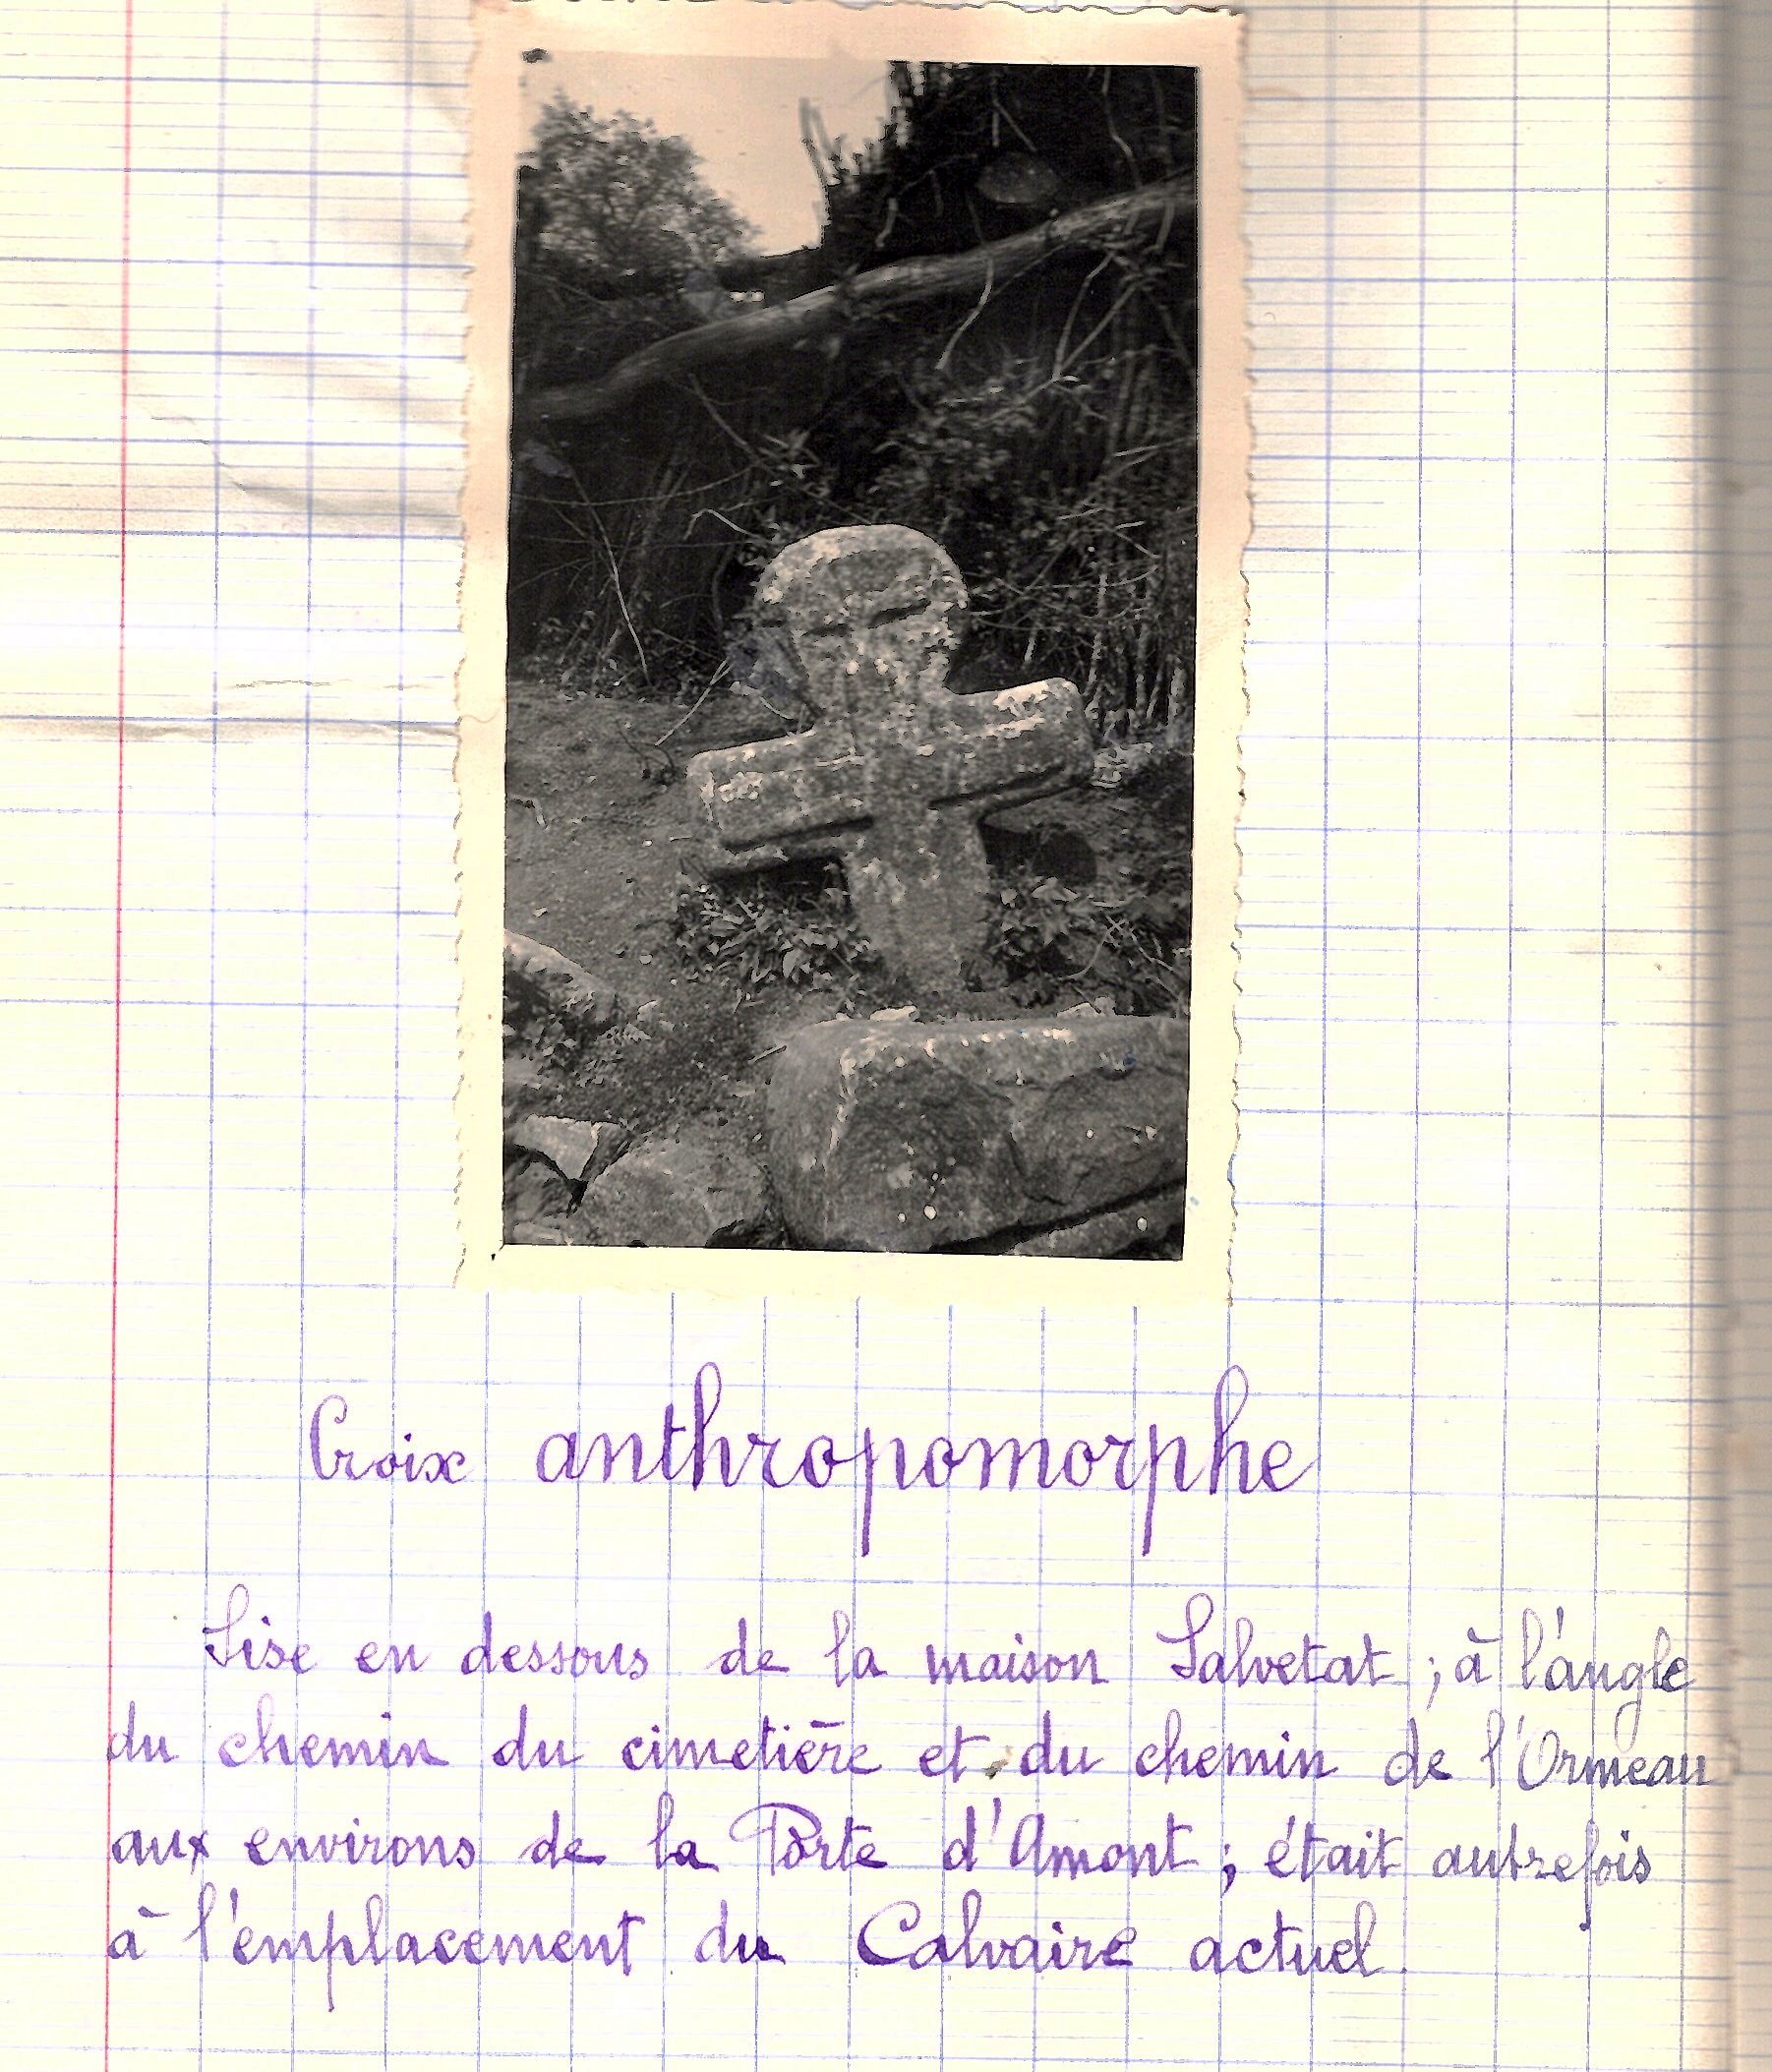 Croix anthropomorphe
Sise en dessous de la maison Salvetat ; à l'angle
du chemin du cimetière et du chemin de l'Ormeau
aux environs de la Porte d'Amont ; était autrefois
à l'emplacement du Calvaire actuel.